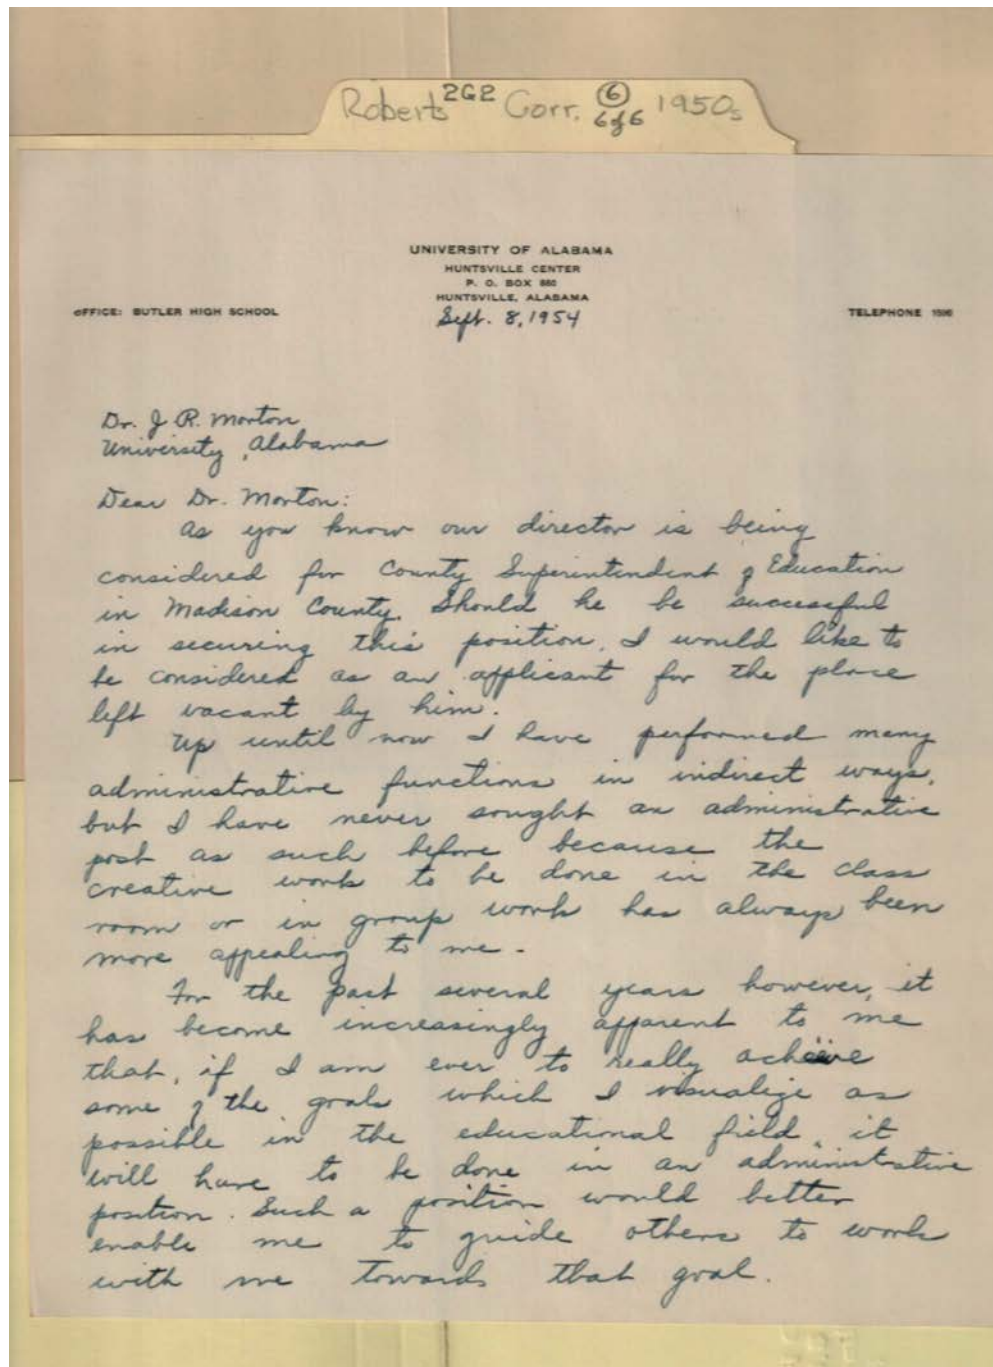 Roberts 2G2 Corr. 6 6 of 6 1950s
UNIVERSITY OF ALABAMA
HUNTSVILLE CENTER
P. O. BOX 860
HUNTSVILLE, ALABAMA
OFFICE: BUTLER HIGH SCHOOL
TELEPHONE
Sept. 8, 1954
Dr. J. R. Morton
University, Alabama
Dear Dr. Morton:
As you know our director is being
considered for County Superintendent of Education
in Madison County. Should he be successful
in securing this position, I would like to
be considered as an applicant for the place
left vacant by him.
Up until now I have performed many
administrative functions in indirect ways,
but I have never sought an administrative
post as such before because the
creative work to be done in the class
room or in group work has always been
more appealing to me.
For the past several years however, it
has become increasingly apparent to me
that, if I am ever to really achieve
some of the goals which I visualize as
possible in the educational field, it
will have to be done in an administrative
position. Such a position would better
enable me to guide others to work
with me towards that goal.